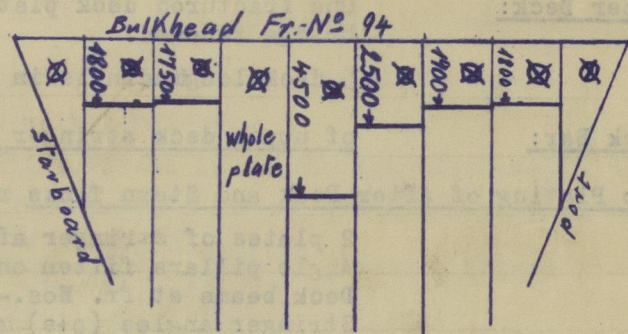 Bulkhead Fr.-Nº 94
1800
1750
whole
plate
4500
2500
1900
1800
Starboard